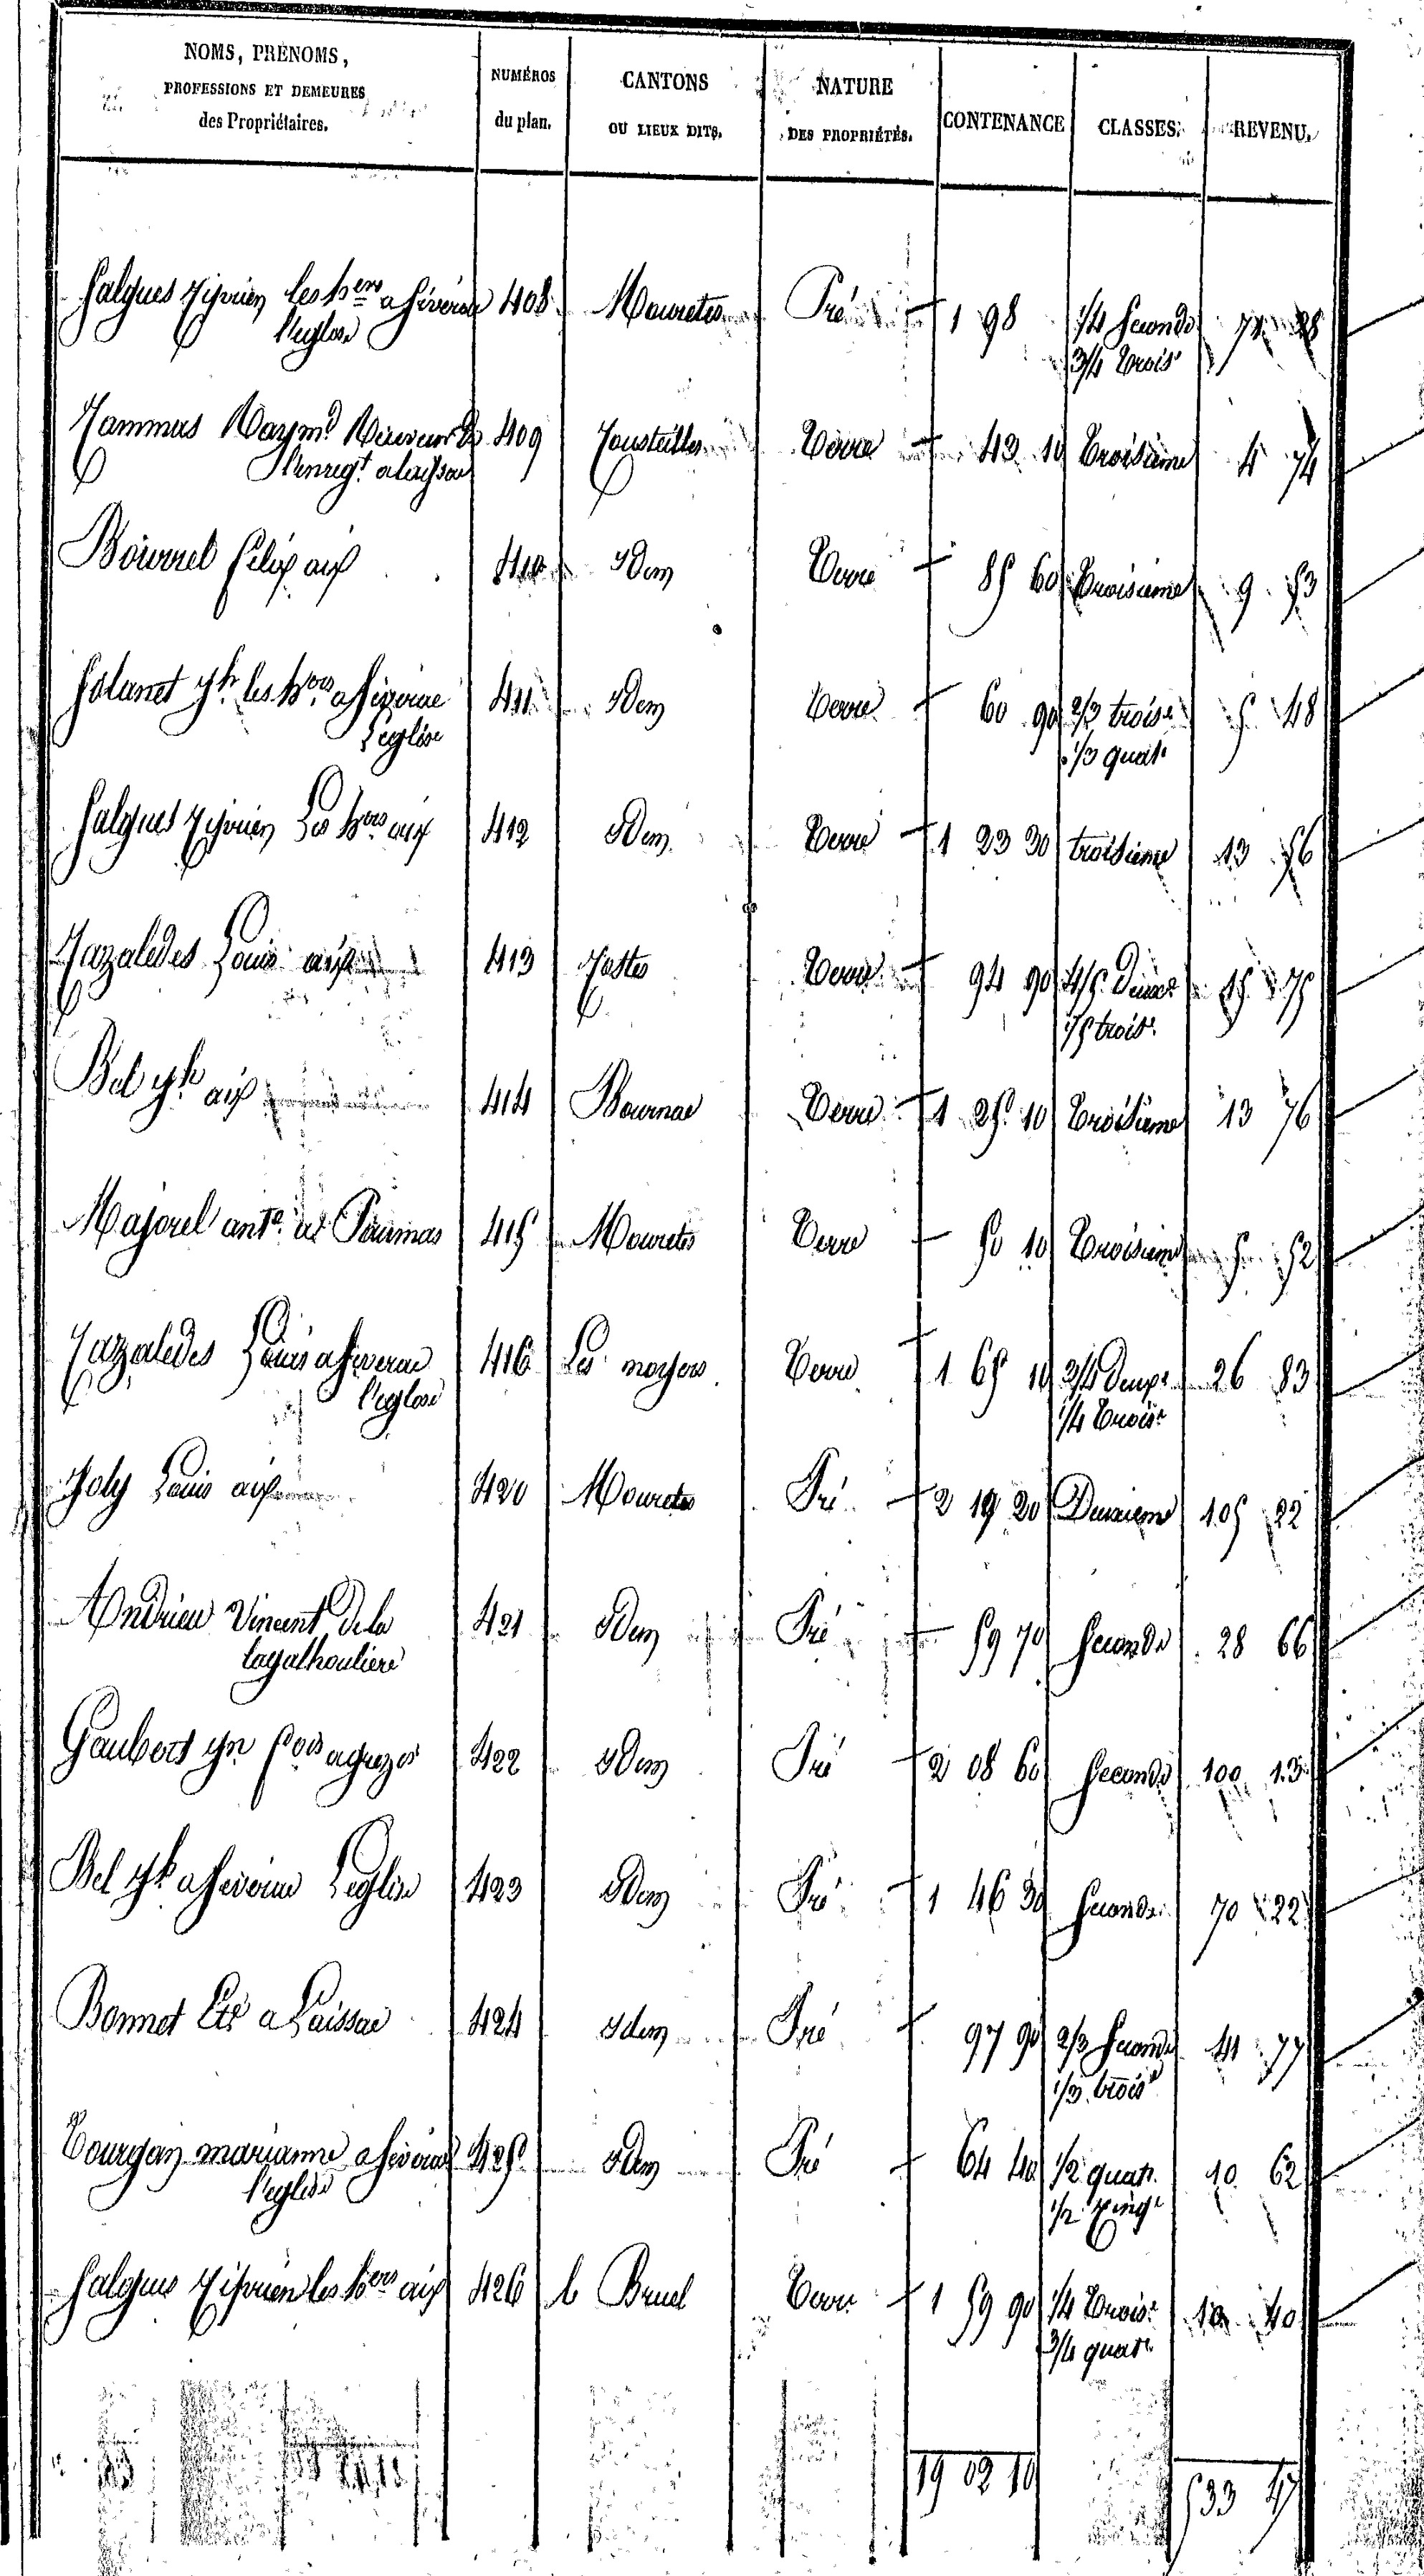 NOMS, PRÉNOMS, PROFESSIONS ET DEMEURES des Propriétaires. | NUMÉROS du plan. | CANTONS OU LIEUX DITS. | NATURE DES PROPRIÉTÉS. | CONTENANCE | CLASSES. | REVENU.
Salgues Ciprien les hers a Séverac 408 Mouretes Pré 1 98 1/4 Seconde 71 28
l'eglise 3/4 trois
Cammas Raymd Receveur de 409 Cousteilles Terre 43 10 Troisieme 4 74
l'enregt a laissac
Bourrel felix aix 410 Idem Terre 85 60 Troisieme 9 53
Solanet jh les hers a Séverac 411 Idem Terre 60 90 2/3 trois 5 48
l'eglise 1/3 quat
Salgues Ciprien Les hers aix 412 Idem Terre 1 23 30 troisieme 13 56
Cazaledes Louis aix 413 Castes Terre 94 90 4/5 Deuxe 15 75
1/5 trois
Bel jh aix 414 Bournac Terre 1 25 10 Troisieme 13 76
Majorel ante a 415 Mouretes Terre 50 10 Troisieme 5 52
Cazaledes Louis a Séverac 416 Les noyers Terre 1 65 10 3/4 Deuxe 26 83
l'eglise 1/4 Trois
Joly Louis aix 420 Mouretes Pré 2 19 20 Deuxieme 105 22
Andrieu Vincent de la 421 Idem Pré 59 70 Seconde 28 66
Gaubert jn fois 422 Idem Pré 2 08 60 Seconde 100 13
Bel jh a Séverac L'eglise 423 Idem Pré 1 46 30 Seconde 70 22
Bonnet a Laissac 424 Idem Pré 97 90 2/3 Seconde 41 77
1/3 trois
Tourjan marianne a Séverac 425 Idem Pré 64 40 1/2 quatr. 10 62
l'eglise 1/2 Cinqe
Salgues Ciprien les hers aix 426 le Bruel Terre 1 59 90 1/4 Trois 10 40
3/4 quat
19 02 10 533 47